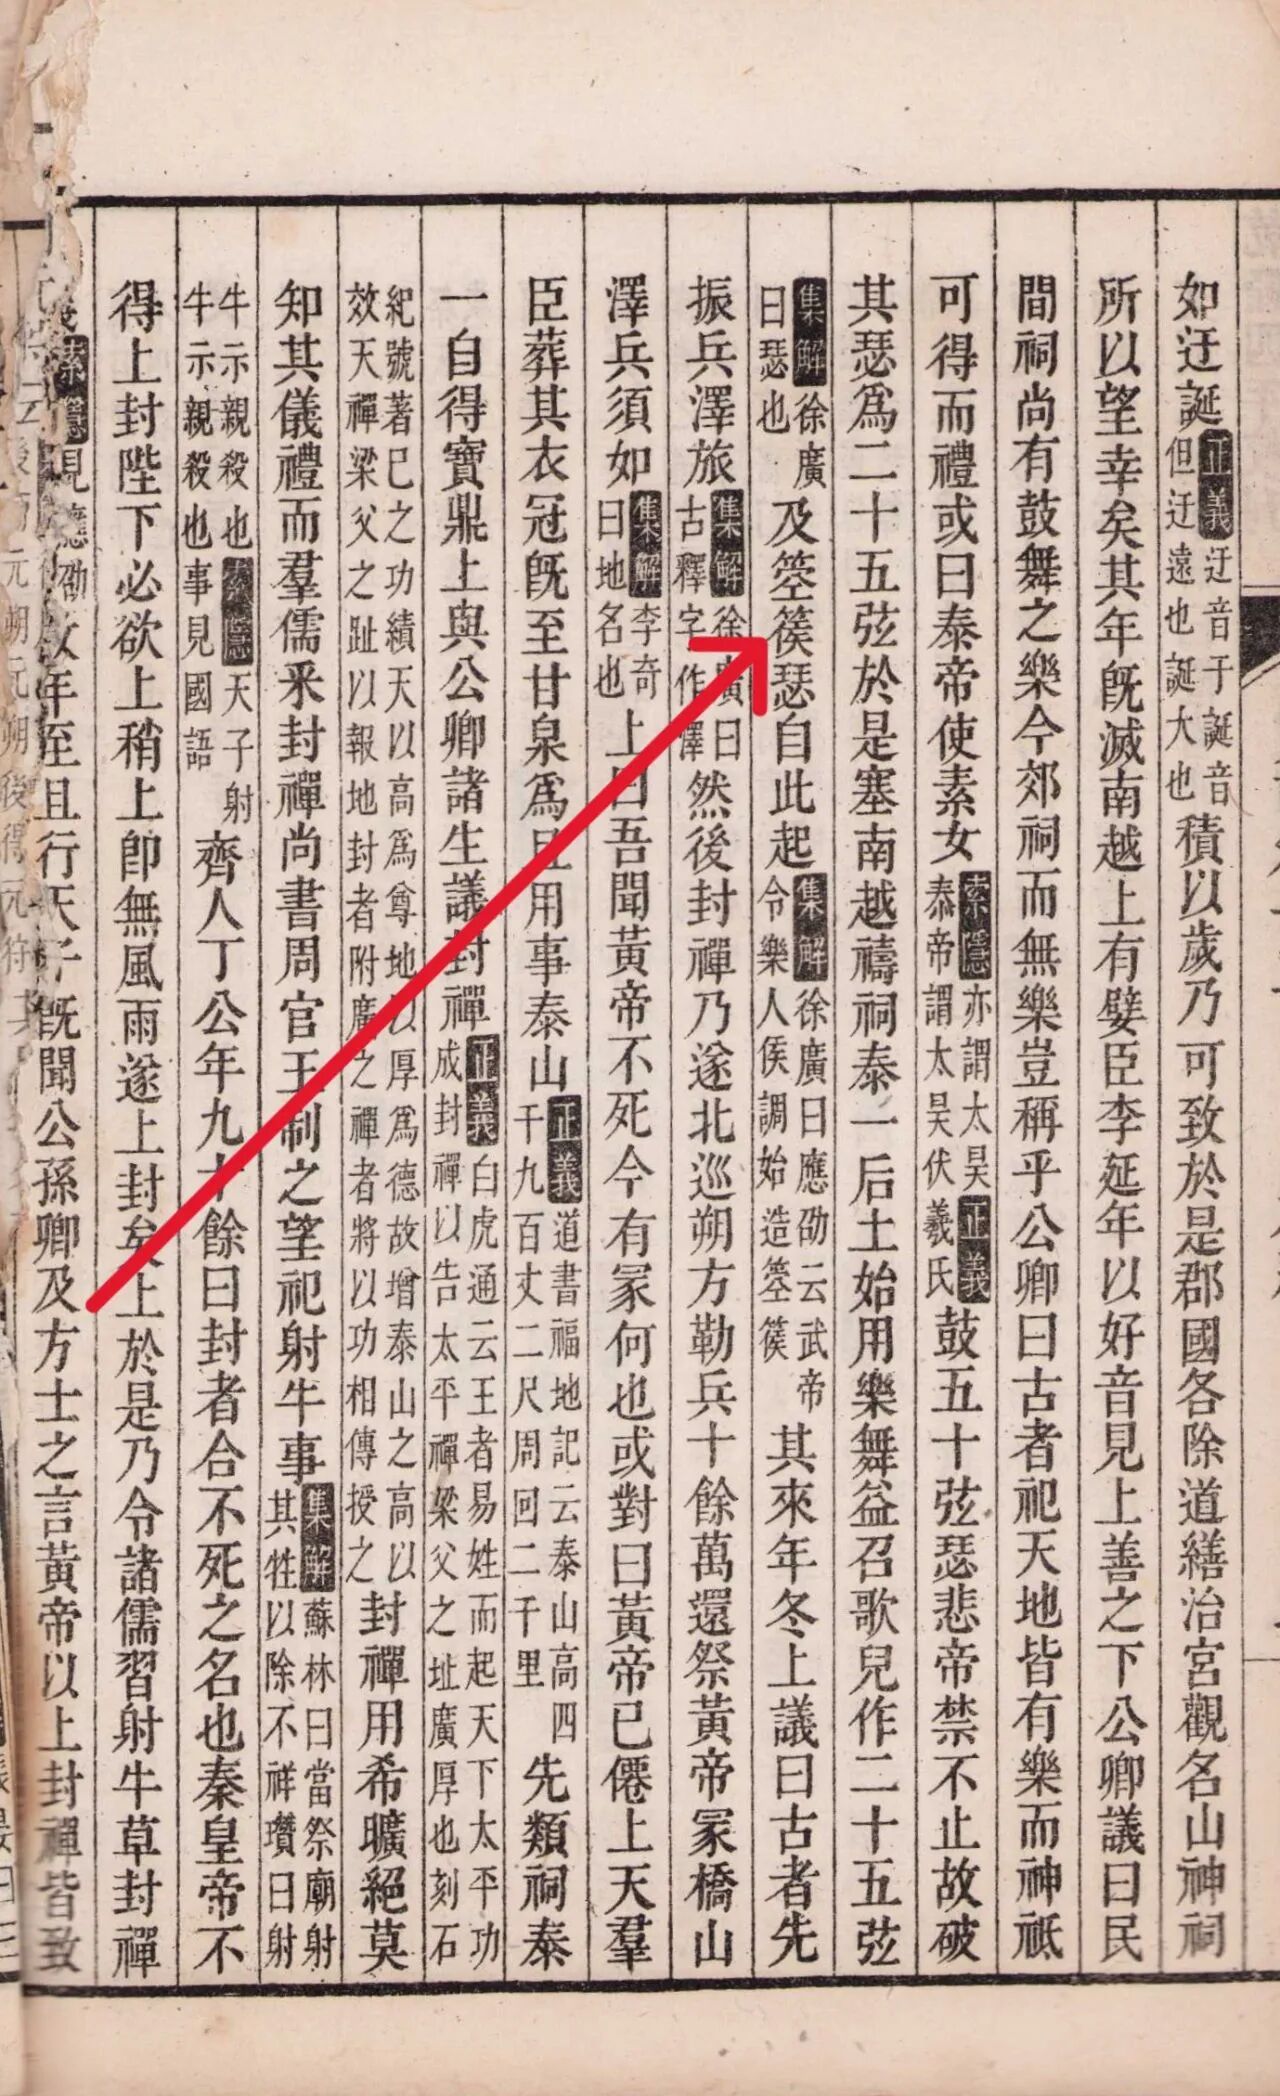 如迂誕正義迂音于誕音但迂遠也誕大也積以歲乃可致於是郡國各除道繕治宮觀名山神祠
所以望幸矣其年既滅南越上有嬖臣李延年以好音見上善之下公卿議曰民
間祠尚有鼓舞之樂今郊祠而無樂豈稱乎公卿曰古者祀天地皆有樂而神祇
可得而禮或曰泰帝使素女索隱亦謂太昊正義泰帝謂太昊伏羲氏鼓五十弦瑟悲帝禁不止故破
其瑟爲二十五弦於是塞南越禱祠泰一后土始用樂舞益召歌兒作二十五弦
集解徐廣曰瑟也及箜篌瑟自此起集解徐廣曰應劭云武帝令樂人侯調始造箜篌其來年冬上議曰古者先
振兵澤旅集解徐廣曰古釋字作澤然後封禪乃遂北巡朔方勒兵十餘萬還祭黃帝冢橋山
澤兵須如集解李奇曰地名也上曰吾聞黃帝不死今有冢何也或對曰黃帝已僊上天羣
臣葬其衣冠既至甘泉爲且用事泰山正義道書福地記云泰山高四千九百丈二尺周回二千里先類祠泰
一自得寶鼎上與公卿諸生議封禪正義白虎通云王者易姓而起天下太平功成封禪以告太平禪梁父之址廣厚也刻石
紀號著已之功績天以高爲尊地以厚爲德故增泰山之高以效天禪梁父之趾以報地封者附廣之禪者將以功相傳授之封禪用希曠絕莫
知其儀禮而羣儒釆封禪尚書周官王制之望祀射牛事集解蘇林曰當祭廟射其牲以除不祥瓚曰射
牛示親殺也索隱天子射牛示親殺也事見國語齊人丁公年九十餘曰封者合不死之名也秦皇帝不
得上封陛下必欲上稍上卽無風雨遂上封矣上於是乃令諸儒習射牛草封禪
索隱見應劭年至且行天子既聞公孫卿及方士之言黃帝以上封禪皆致